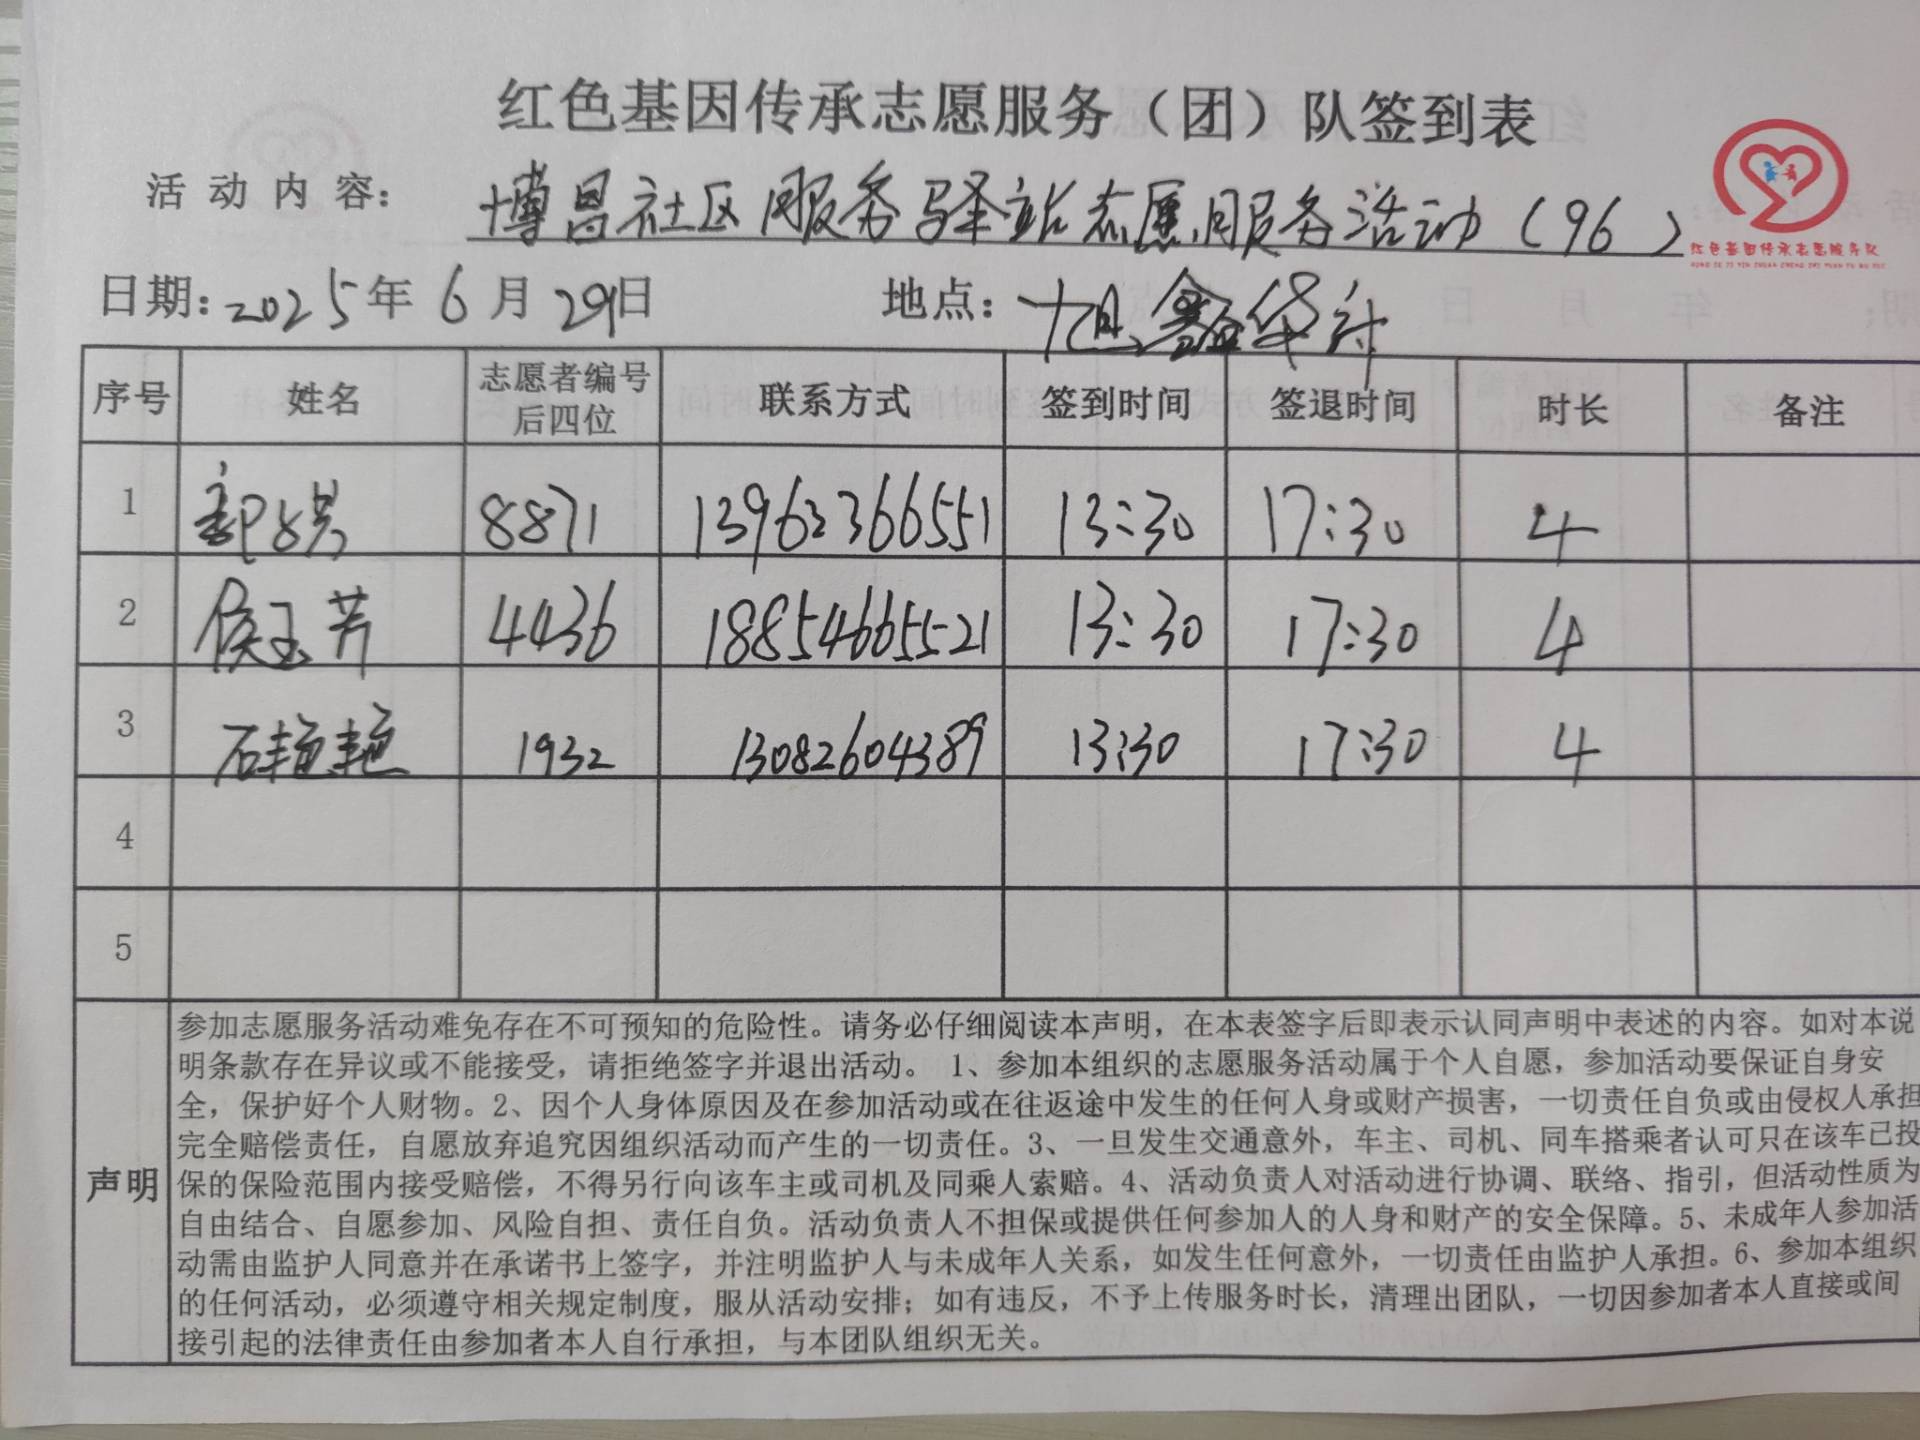 红色基因传承志愿服务（团）队签到表
活动内容： 博昌社区服务驿站志愿服务活动（96）
红色基因传承志愿服务队
日期：2025年6月29日 地点：旭鑫华府
序号 姓名 志愿者编号后四位 联系方式 签到时间 签退时间 时长 备注
1 8871 13963366551 13:30 17:30 4
2 侯玉芳 4436 18854665521 13:30 17:30 4
3 石艳艳 1932 13082604389 13:30 17:30 4
4
5
声明
参加志愿服务活动难免存在不可预知的危险性。请务必仔细阅读本声明，在本表签字后即表示认同声明中表述的内容。如对本说
明条款存在异议或不能接受，请拒绝签字并退出活动。 1、参加本组织的志愿服务活动属于个人自愿，参加活动要保证自身安
全，保护好个人财物。2、因个人身体原因及在参加活动或在往返途中发生的任何人身或财产损害，一切责任自负或由侵权人承担
完全赔偿责任，自愿放弃追究因组织活动而产生的一切责任。3、一旦发生交通意外，车主、司机、同车搭乘者认可只在该车已投
保的保险范围内接受赔偿，不得另行向该车主或司机及同乘人索赔。4、活动负责人对活动进行协调、联络、指引，但活动性质为
自由结合、自愿参加、风险自担、责任自负。活动负责人不担保或提供任何参加人的人身和财产的安全保障。5、未成年人参加活
动需由监护人同意并在承诺书上签字，并注明监护人与未成年人关系，如发生任何意外，一切责任由监护人承担。6、参加本组织
的任何活动，必须遵守相关规定制度，服从活动安排；如有违反，不予上传服务时长，清理出团队，一切因参加者本人直接或间
接引起的法律责任由参加者本人自行承担，与本团队组织无关。